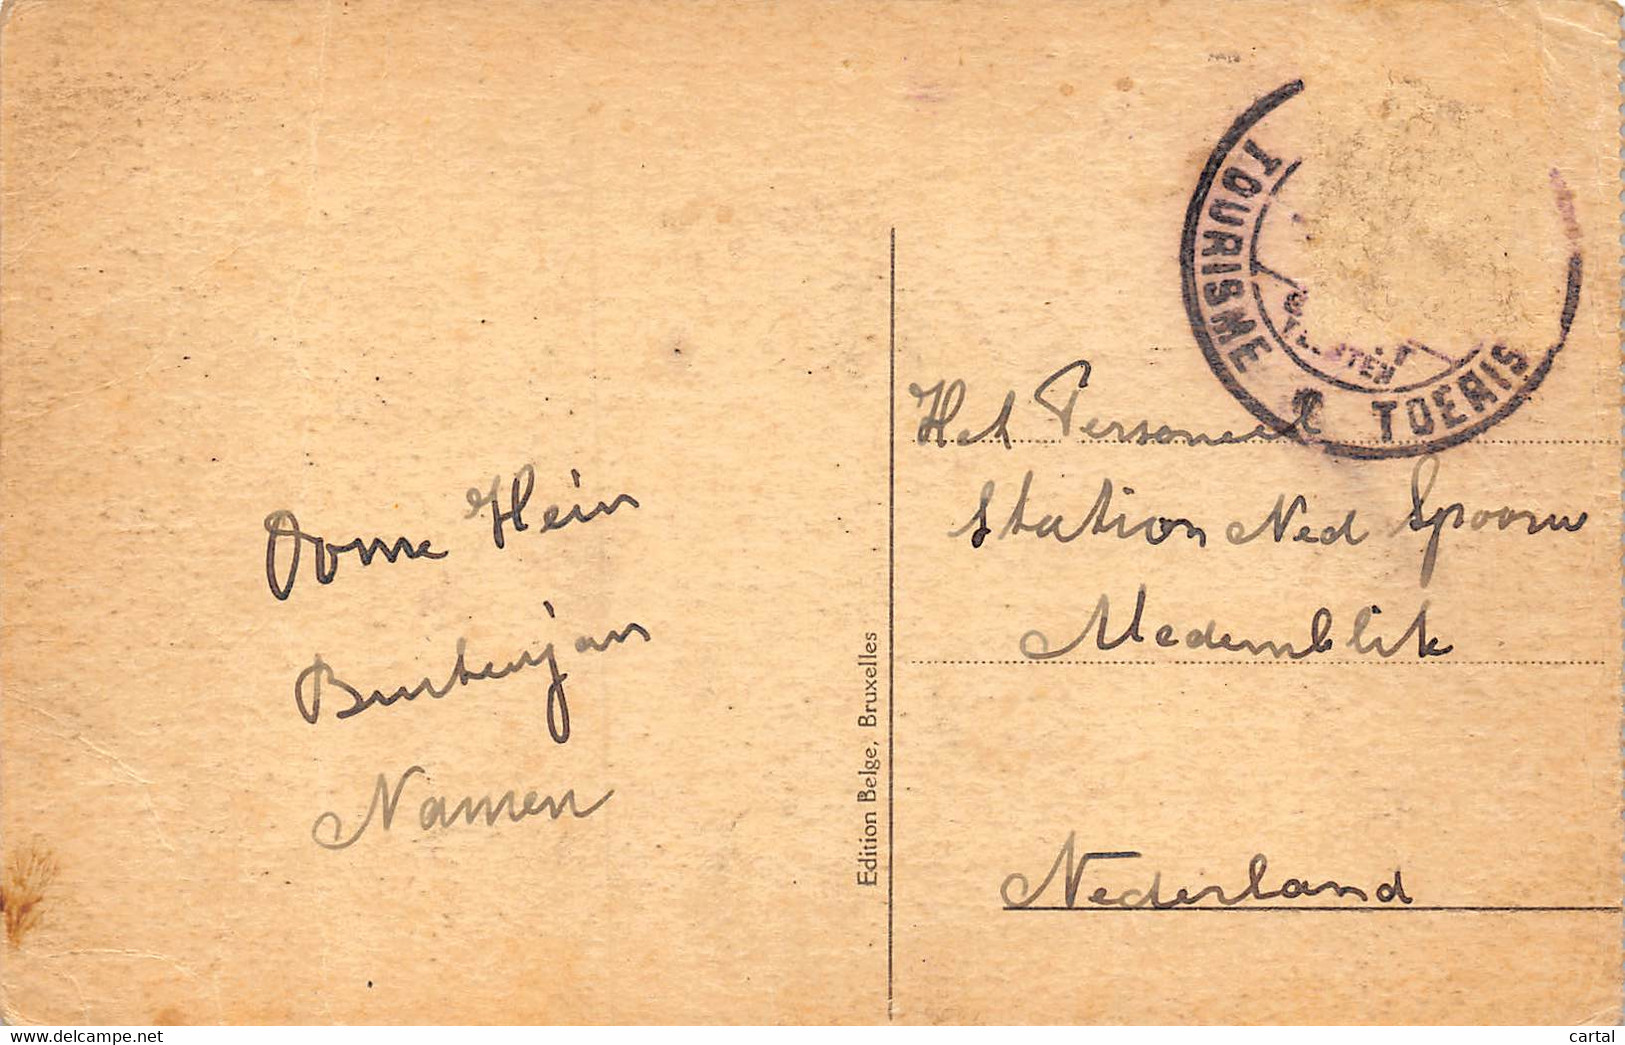 TOURISME & TOERIS
Oome Hein
Buitenjan
Namen
Edition Belge, Bruxelles
Het Personeel
Station Ned Spoorw
Medemblik
Nederland
delcampe.net
cartal